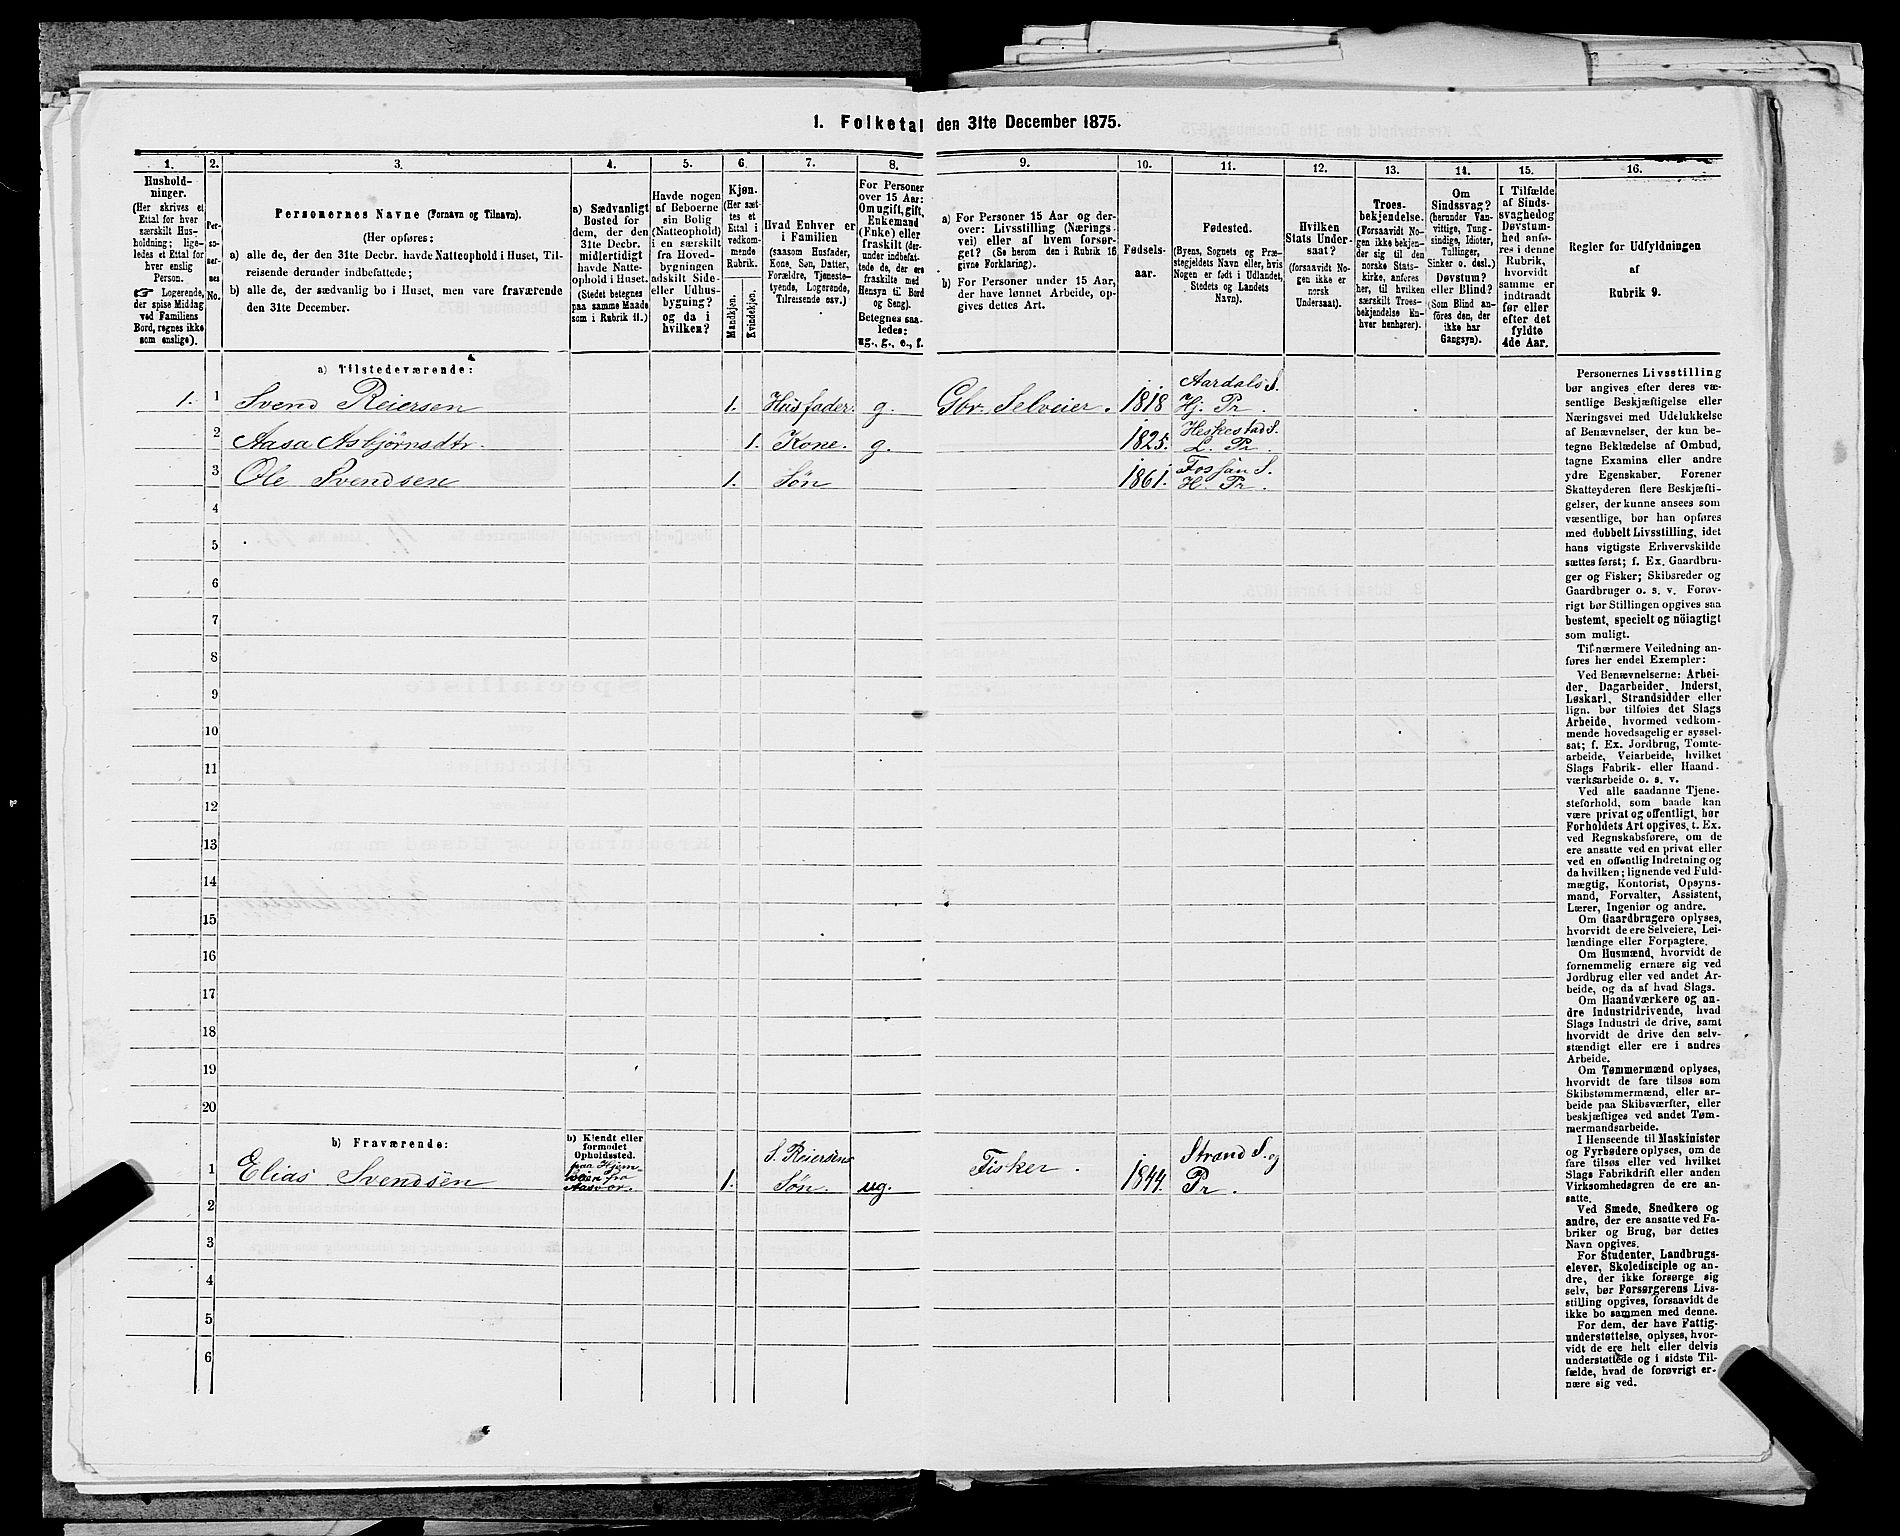 1. Folketal den 31te December 1875.
1. 2. 3. 4. 5. 6. 7. 8. 9. 10. 11. 12. 13. 14. 15. 16.
Hushold-
ninger.
(Her skrives et
Ettal for hver
særskilt Hus-
holdning; lige-
ledes et Ettal for
hver enslig
Person.
☞ Logerende,
der spise Middag
ved Familiens
Bord, regnes ikke
som enslige).
Per-
so-
ner-
nes
No.
Personernes Navne (Fornavn og Tilnavn).
(Her opføres:
a) alle de, der den 31te Decbr. havde Natteophold i Huset, Til-
reisende derunder indbefattede;
b) alle de, der sædvanlig bo i Huset, men vare fraværende
den 31te December.
a) Sædvanligt
Bosted for
dem, der den
31te Decbr.
midlertidigt
havde Natte-
ophold i Huset.
(Stedet betegnes
paa samme Maade
som i Rubrik 11.)
Havde nogen
af Beboerne
sin Bolig
(Natteophold)
i en særskilt
fra Hoved-
bygningen
adskilt Side-
eller Udhus-
bygning?
og da i
hvilken?
Kjøn.
(Her sæt-
tes et
Ettal i
vedkom-
mende
Rubrik.
Mandkjøn.
Kvindekjøn.
Hvad Enhver er
i Familien
(saasom Husfader,
Kone, Søn, Datter,
Forældre, Tjeneste-
tyende, Logerende,
Tilreisende osv.)
For Personer
over 15 Aar:
Om ugift, gift,
Enkemand
(Enke) eller
fraskilt (der-
under indbefat-
tede de, der ere
fraskilte med
Hensyn til Bord
og Seng).
Betegnes saa-
ledes:
ug., g., e., f.
a) For Personer 15 Aar og der-
over: Livsstilling (Nærings-
vei) eller af hvem forsør-
get? (Se herom den i Rubrik 16
givne Forklaring).
b) For Personer under 15 Aar,
der have lønnet Arbeide, op-
gives dettes Art.
Fødsels-
aar.
Fødested.
(Byens, Sognets og Præ-
stegjeldets Navn eller, hvis
Nogen er født i Udlandet,
Stedets og Landets
Navn).
Hvilken
Stats Under-
saat?
(forsaavidt No-
gen ikke er
norsk
Undersaat).
Troes-
bekjendelse.
(Forsaavidt No-
gen ikke bekjen-
der sig til den
norske Stats-
kirke, anføres
her, til hvilken
særskilt Troes-
bekjendelse En-
hver henhører).
Om
Sindssvag?
(herunder Van-
vittige, Tung-
sindige, Idioter,
Tullinger,
Sinker o. desl.)
Døvstum?
eller Blind?
(Som Blind an-
føres den, der
ikke har
Gangsyn).
I Tilfælde
af Sinds-
svaghed og
Døvstum-
hed anfø-
res i denne
Rubrik,
hvorvidt
samme er
indtraadt
før eller
efter det
fyldte
4de Aar.
Regler for Udfyldningen
af
Rubrik 9.
a) Tilstedeværende:
1. 1 Svend Reiersen 1. Husfader. g. Gbr. Selveier. 1818 Aardals S.
Hj. Pr.
2 Aasa Asbjørnsdtr. 1. Kone. g. 1825. Heskestad S.
L. Pr.
3 Ole Svendsen 1. Søn 1861. Fossan S.
H. Pr.
4
5
6
7
8
9
10
11
12
13
14
15
16
17
18
19
20
b) Fraværende:
b) Kjendt eller
formodet
Opholdssted.
1 Elias Svendsen paa Hjem-
veien fra
Aasvær. 1. S. Reiersens
Søn. ug. Fisker. 1844. Strand S. og
Pr.
2
3
4
5
6
Personernes Livsstilling
bør angives efter deres væ-
sentlige Beskjæftigelse eller
Næringsvei med Udelukkelse
af Benævnelser, der kun be-
tegne Beklædelse af Ombud,
tagne Examina eller andre
ydre Egenskaber. Forener
Skatteyderen flere Beskjæfti-
gelser, der kunne ansees som
væsentlige, bør han opføres
med dobbelt Livsstilling, idet
hans vigtigste Erhvervskilde
sættes først; f. Ex. Gaardbru-
ger og Fisker; Skibsreder og
Gaardbruger o. s. v. Forøv-
rigt bør Stillingen opgives saa
bestemt, specielt og nöiagtigt
som muligt.
Til nærmere Veiledning an-
føres her endel Exempler:
Ved Benævnelserne: Arbei-
der, Dagarbeider, Inderst,
Løskarl, Strandsidder eller
lign. bør tilføies det Slags
Arbeide, hvormed vedkom-
mende hovedsagelig er syssel-
sat; f. Ex. Jordbrug, Tomte-
arbeide, Veiarbeide, hvilket
Slags Fabrik- eller Haand-
værksarbeide o. s. v.
Ved alle saadanne Tjene-
steforhold, som baade kan
være privat og offentligt, bør
Forholdets Art opgives, t. Ex.
ved Regnskabsførere, om de
ere ansatte ved en privat eller
ved en offentlig Indretning og
da hvilken; lignende ved Fuld-
mægtig, Kontorist, Opsyns-
mand, Forvalter, Assistent,
Lærer, Ingeniør og andre.
Om Gaardbrugere oplyses,
hvorvidt de ere Selveiere, Lei-
lændinge eller Forpagtere.
Om Husmænd, hvorvidt de
fornemmelig ernære sig ved
Jordbrug eller ved andet Ar-
beide, og da af hvad Slags.
Om Haandværkere og an-
dre Industridrivende, hvad
Slags Industri de drive, samt
hvorvidt de drive den selv-
stændigt eller ere i andres
Arbeide.
Om Tømmermænd oplyses,
hvorvidt de fare tilsøs som
Skibstømmermænd, eller ar-
beide paa Skibsværfter, eller
beskjæftiges ved andet Tøm-
mermandsarbeide.
I Henseende til Maskinister
og Fyrbødere oplyses, om de
fare tilsøs eller ved hvilket
Slags Fabrikdrift eller anden
Virksomhedsgren de ere an-
satte.
Ved Smede, Snedkere og
andre, der ere ansatte ved Fa-
briker og Brug, bør dettes
Navn opgives.
For Studenter, Landbrugs-
elever, Skoledisciple og an-
dre, der ikke forsørge sig
selv, bør Forsørgerens Livs-
stilling opgives, forsaavidt de
ikke bo sammen med denne.
For dem, der have Fattig-
understøttelse, oplyses, hvor-
vidt de ere helt eller delvis
understøttede og i sidste Til-
fælde, hvad de forøvrigt er-
nære sig ved.